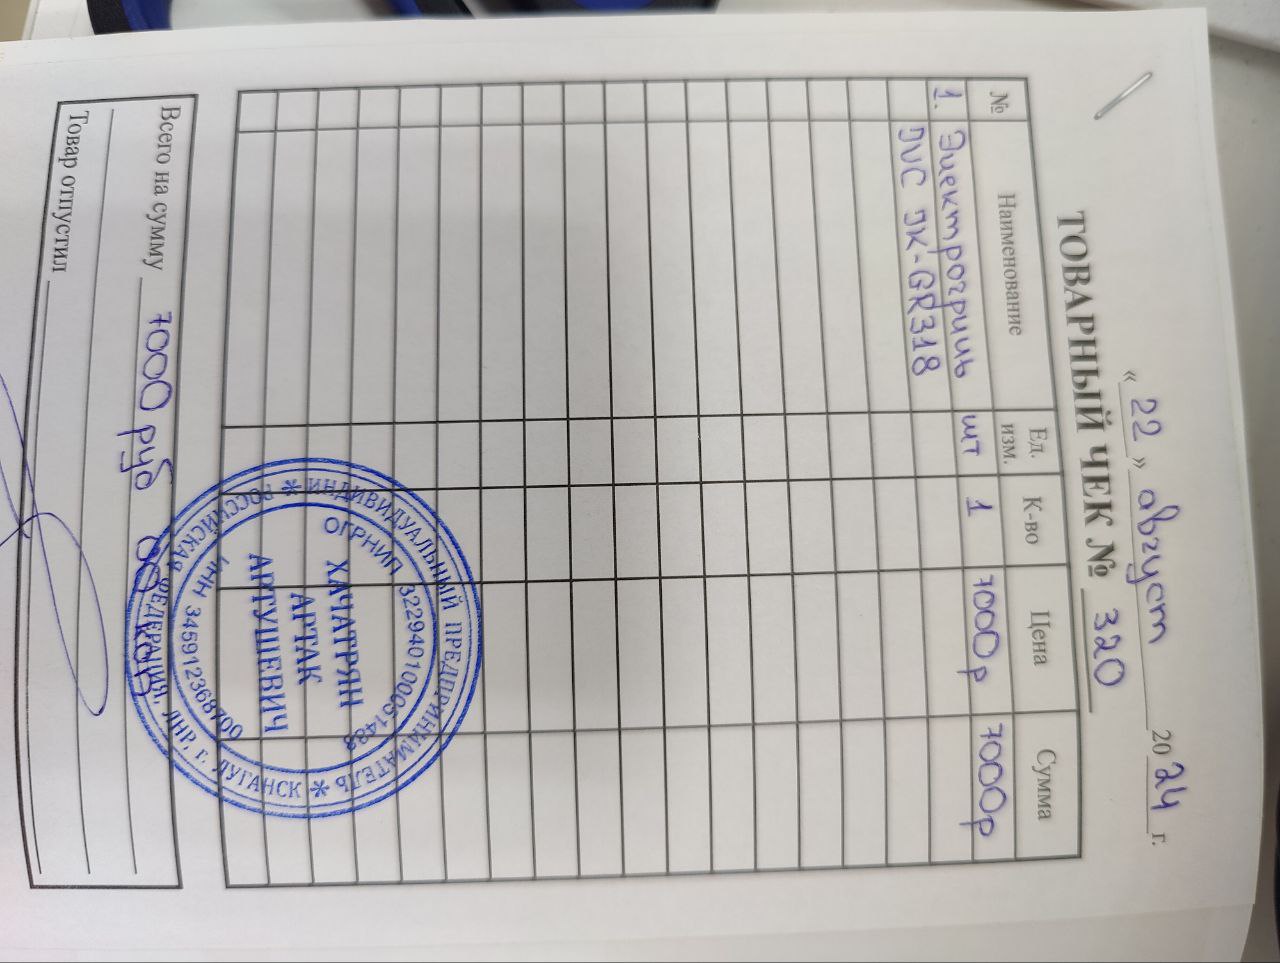 « 22 » август 20 24 г.
ТОВАРНЫЙ ЧЕК № 320
№ Наименование Ед. изм. К-во Цена Сумма
1. Электрогриль шт 1 7000р 7000р
JVC JK-GR318
Всего на сумму 7000 руб 00 коп
Товар отпустил
* ИНДИВИДУАЛЬНЫЙ ПРЕДПРИНИМАТЕЛЬ *
РОССИЙСКАЯ ФЕДЕРАЦИЯ, ЛНР, г. ЛУГАНСК
ОГРНИП
ХАЧАТРЯН
АРТАК
АРТУШЕВИЧ
ИНН 345912368700